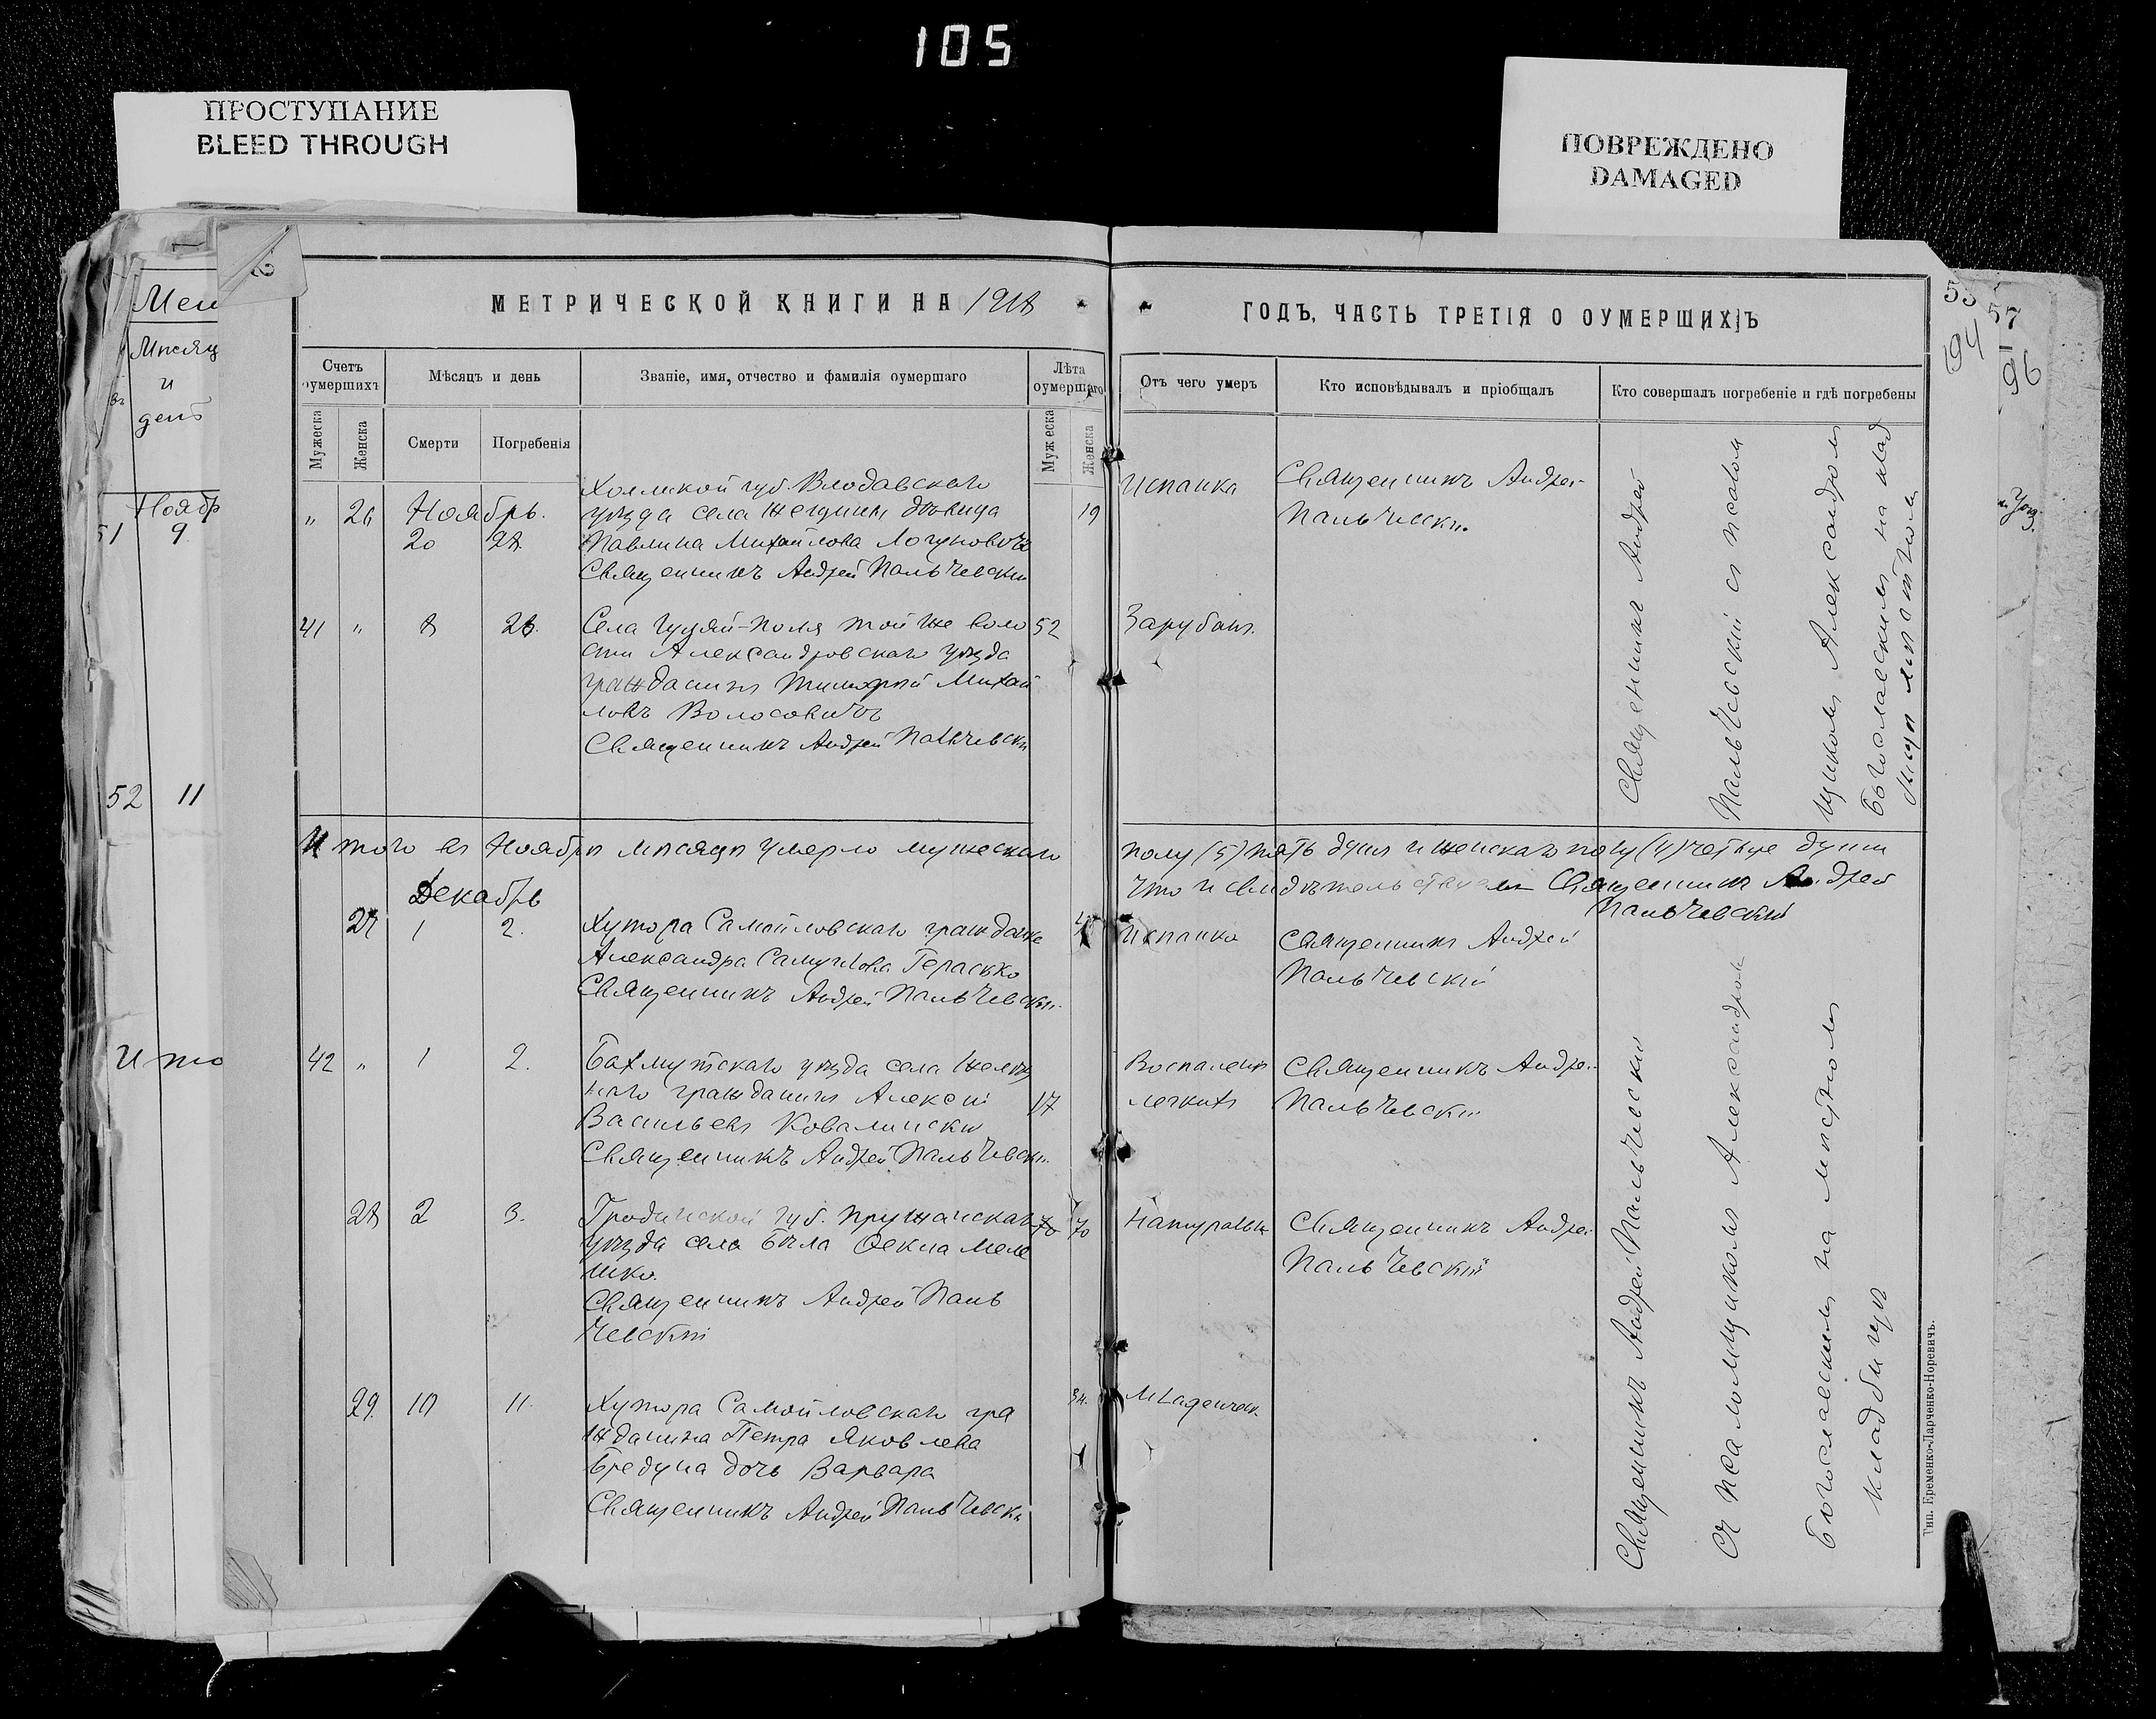 105
ПРОСТУПАНИЕ
BLEED THROUGH
ПОВРЕЖДЕНО
DAMAGED
Мпсяц
и
день
Ноябр
51 9.
52 11
Ито
2
МЕТРИЧЕСКОЙ КНИГИ НА 1918
Счетъ оумершихъ
Мѣсяцъ и день
Званіе, имя, отчество и фамилія оумершаго
Лѣта оумершаго
Мужеска
Женска
Смерти
Погребенія
Мужеска
Женска
Холмской губ. Влодавскаго
" 26 Ноябрь. уѣзда села дѣвица 19
20 28. Павлина Михайлова Логуновичъ
Священникъ Андрей Пальчевскій
41 " 8 28. Села Гуляй-Поля той же воло 52
сти Александровскаго уѣзда
гражданинъ Тимофей Михай
ловъ Волосовичъ
Священникъ Андрей Пальчевскій
Итого въ Ноябрѣ мѣсяцѣ умерло мужескаго
Декабрь
27 1 2. Хутора Самойловскаго гражданка
Александра Самуилова Герасько
Священникъ Андрей Пальчевскій
42 " 1 2. Бахмутскаго уѣзда села Желѣз
наго гражданинъ Алексій 17
Васильевъ Ковалинскій
Священникъ Андрей Пальчевскій
28 2 3. Гродненской губ. Пружанскаго 70 70
уѣзда села Бѣла Ѳекла Меле
шко.
Священникъ Андрей Паль
чевскій
29. 10 11. Хутора Самойловскаго гра 3н.
жданина Петра Яковлева
Бредуна дочь Варвара
Священникъ Андрей Пальчевскій
ГОДЪ, ЧАСТЬ ТРЕТІЯ О ОУМЕРШИХЪ
Отъ чего умеръ
Кто исповѣдывалъ и пріобщалъ
Кто совершалъ погребеніе и гдѣ погребены
Испанка Священникъ Андрей
Пальчевскій
Зарубанъ.
Священникъ Андрей
Пальчевскій съ псалом
щикомъ Александромъ
Богославскимъ на клад
бищѣ мѣстномъ
полу (5) пять душъ и женскаго полу (4) четыре души
что и свидѣтельствуемъ Священникъ Андрей
Пальчевскій
Испанка Священникъ Андрей
Пальчевскій
Воспаленіе Священникъ Андрей
легкихъ Пальчевскій
Натуральн Священникъ Андрей
Пальчевскій
Младенческ.
Священникъ Андрей Пальчевскій
съ псаломщикомъ Александромъ
Богославскимъ на мѣстномъ
кладбищѣ
Тип. Еременко-Ларченко-Норевичъ.
194
57
96